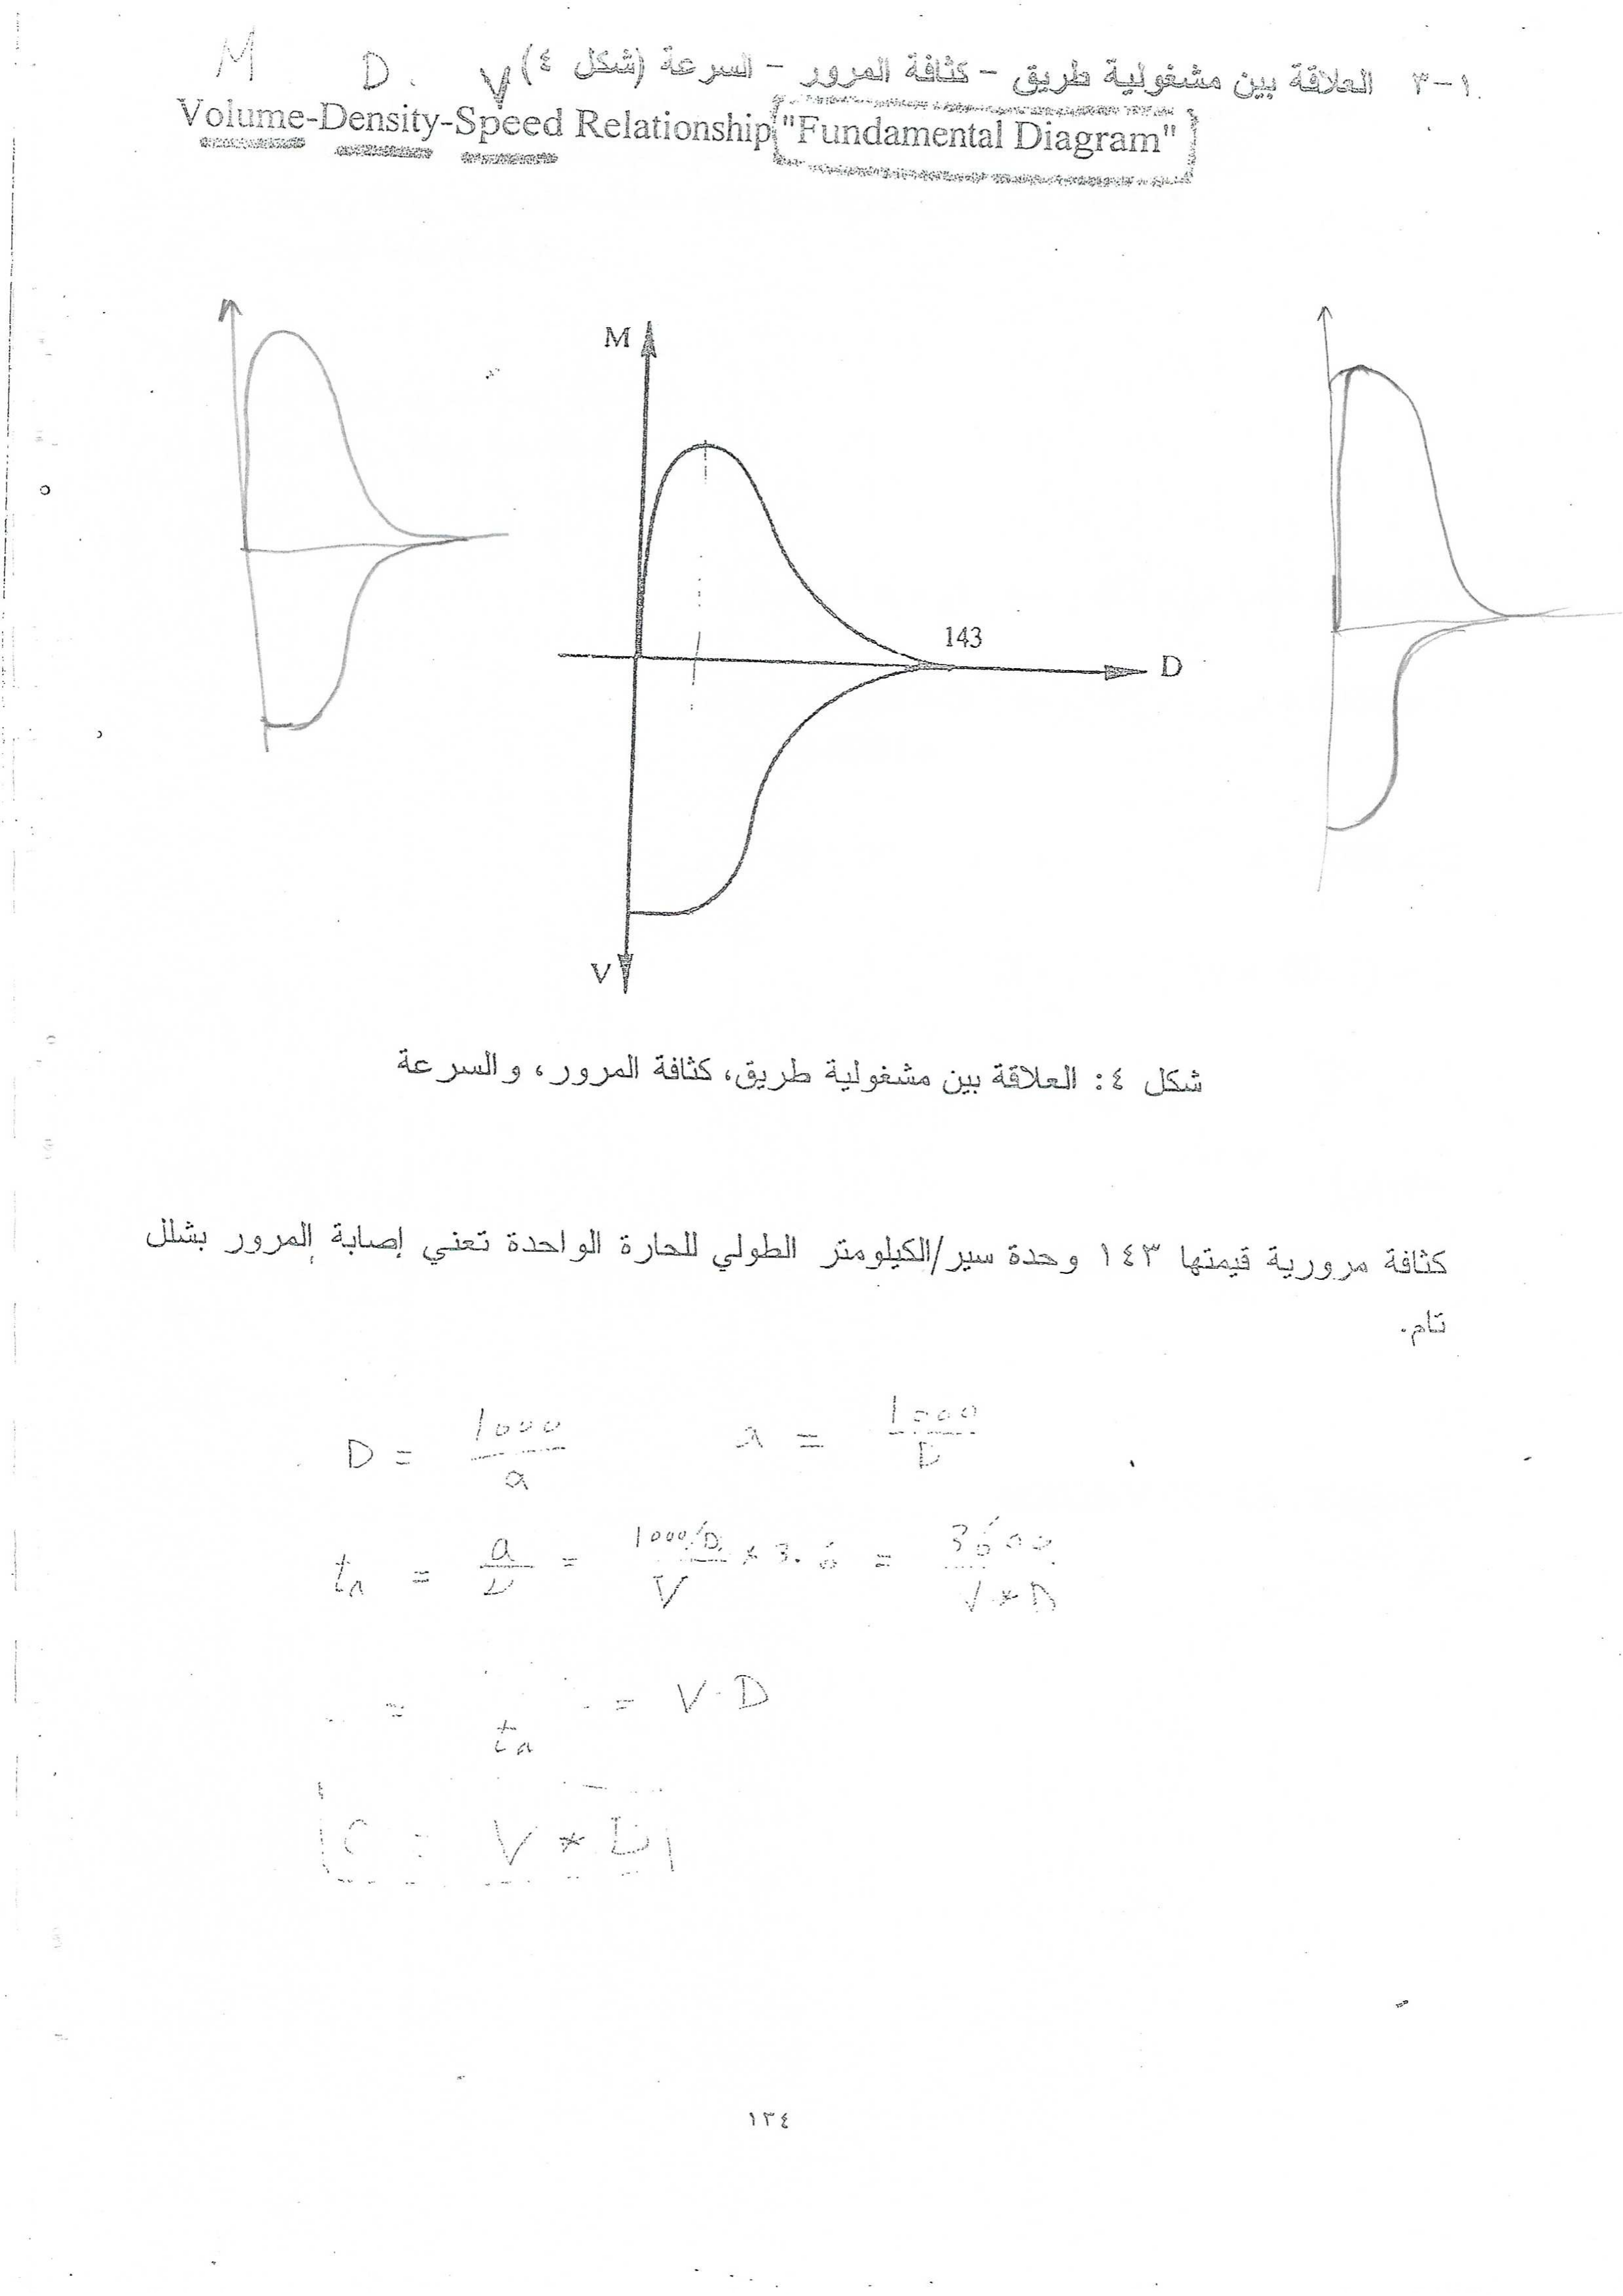 M D. V
١-٣ العلاقة بين مشغولية طريق - كثافة المرور - السرعة (شكل ٤)
Volume-Density-Speed Relationship "Fundamental Diagram"
M
143
D
V
شكل ٤: العلاقة بين مشغولية طريق، كثافة المرور، والسرعة
كثافة مرورية قيمتها ١٤٣ وحدة سير/الكيلومتر الطولي للحارة الواحدة تعني إصابة المرور بشلل
تام.
D = 1000/a a = 1000/D
tn = a/v = 1000/D/V * 3.6 = 3600/V*D
= tn = V.D
C = V * D
١٣٤